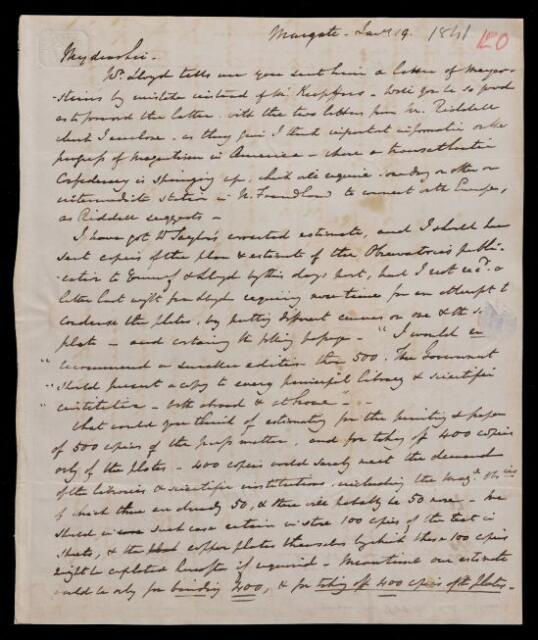 Margate - Jany 19. 1841 20
My dear Sir -
Wm. Lloyd tells me you sent him a letter of Meyer-
-stein's by mistake instead of Mr Kupffer's - Will you be so good
as to forward the letter - with the two letters from Mr. Riddell
which I enclose - as they give I think important information on the
progress of magnetism in America - where a transatlantic
Confederacy is springing up; which will require one day or other an
intermediate station in N. Foundland to connect with Europe,
as Riddell suggests -
I have got Mr Taylor's corrected estimate, and I should have
sent copies of the plan & estimate of the Observatories publi-
-cation to & Lloyd by this day's post, had I not recd. a
letter last night from Lloyd requiring more time for an attempt to
condense the plates, by putting different curves on one & the same
plate - and curtailing the letter press - " I would
" recommend a smaller edition than 500. The Government
" should present a copy to every powerful library & scientific
" institution - both abroad & at home " -
What would you think of estimating for the printing & paper
of 500 copies of the press matter, and for taking off 400 copies
only of the plates - 400 copies would surely meet the demand
of the libraries & scientific institutions, including the Magc. Obs
of which there are already 50, & there will probably be 50 more - We
should in such case retain in store 100 copies of the text in
sheets, & the copper plates themselves by which these 100 copies
might be completed hereafter if required - Meantime our estimate
would be only for binding 400, & for taking off 400 copies of the plates -